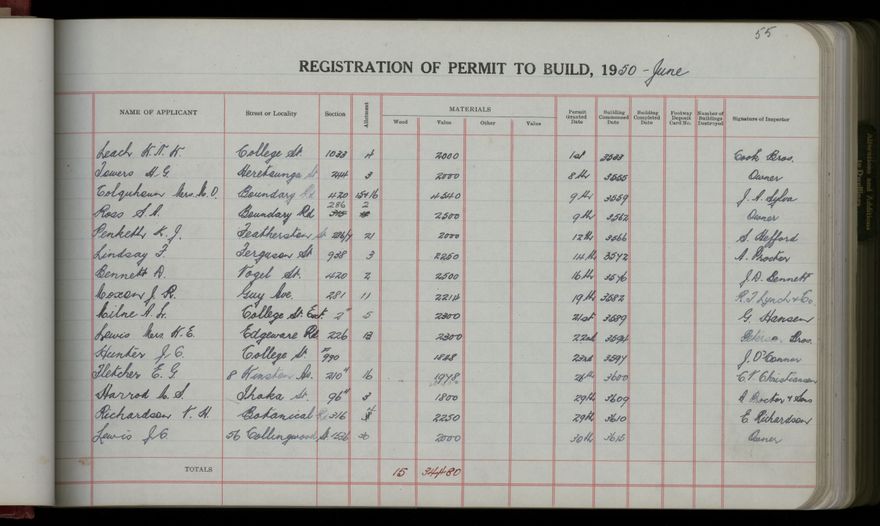 55
REGISTRATION OF PERMIT TO BUILD, 1950 - June
NAME OF APPLICANT Street or Locality Section Allotment MATERIALS Permit Granted Date Building Commenced Date Building Completed Date Footway Deposit Card No. Number of Buildings Destroyed Signature of Inspector
Wood Value Other Value
Leach College St. 1033 4 2000 1st 3553 Cook Bros.
Towers H. G. Heretaunga St 244 3 2000 8th 3555 Owner
Colquhoun Mrs. M. O. Boundary Rd 420 15+16 4540 9th 3559 J. A. Sylva
Ross S. A. Boundary Rd 286 2 2500 9th 3562 Owner
Penketh K. J. Featherston St 21 2000 12th 3566 S. Hefford
Lindsay F. Ferguson St 938 3 2250 14th 3572 A. Procter
Bennett D. Vogel St. 420 2 2500 16th 3576 J. D. Bennett
Coxon J. R. Guy Ave. 281 11 2214 19th 3582 R. J. Lynch & Co.
Milne A. L. College St. East 2 5 2300 21st 3589 G. Hansen
Lewis Mrs. H. E. Edgeware Rd 226 13 2300 22nd 3594 Peterson Bros.
Hunter J. C. College St 990 1868 23rd 3597 J. O'Connor
Fletcher E. G. 8 St. 210 16 1978 26th 3600 C. V. Christiansen
Harrod C. S. Shaka St. 96 3 1800 29th 3609 A Procter & Sons
Richardson V. H. Botanical Rd 316 2250 29th 3610 E. Richardson
Lewis J. C. 56 Collingwood St 2000 30th 3615 Owner
TOTALS 15 34480
Alterations and Additions to Dwellings